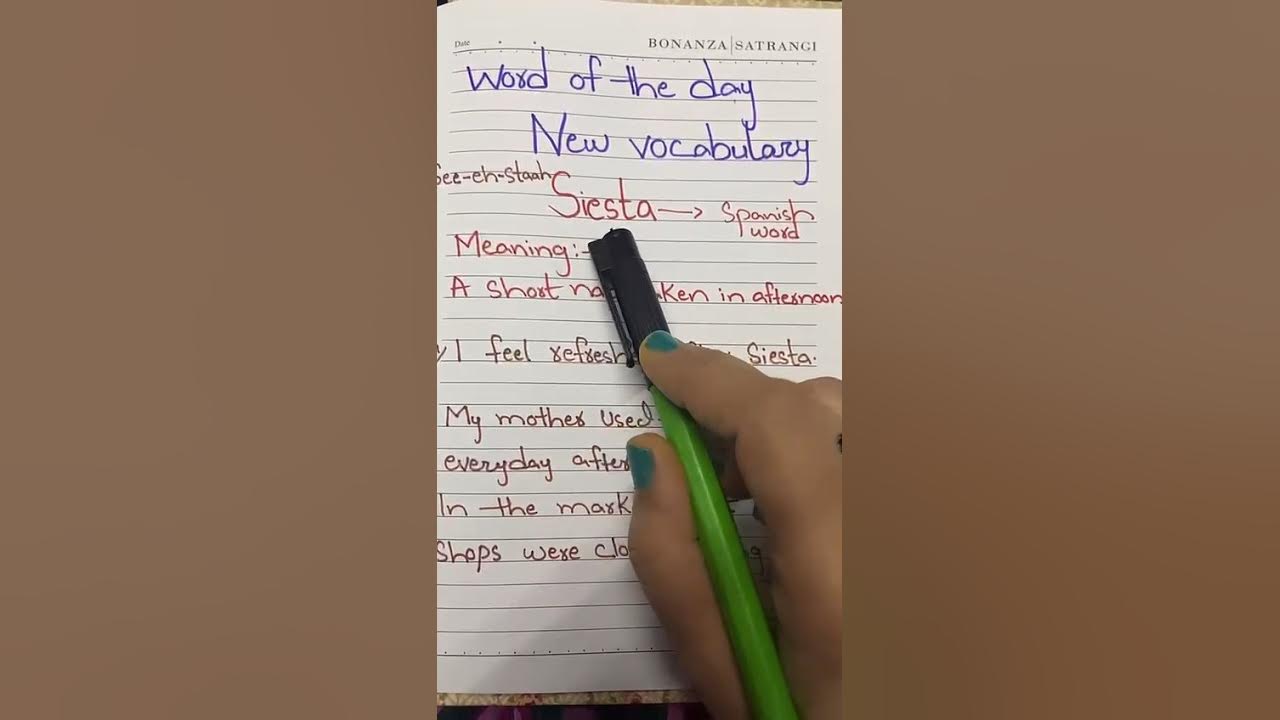 Date
BONANZA|SATRANGI
Word of the day
New vocabulary
See-eh-staah
Siesta → Spanish word
Meaning:-
A short in afternoon
I feel Siesta.
My mother used
everyday
In the
Shops were